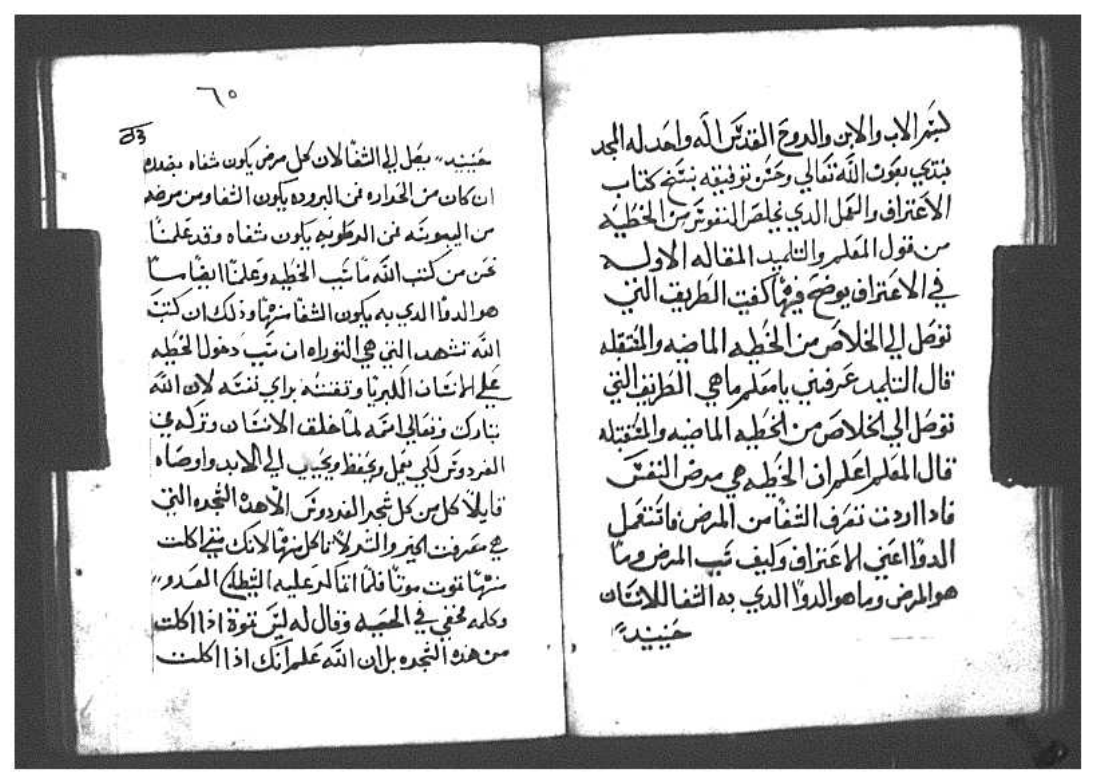 بسم الاب والابن والروح القدس اله واحد له المجد
نبتدي بعون الله تعالي وحسن توفيقه بنسخ كتاب
الاعتراف والعمل الدي يخلص النفوس من الخطيه
من قول المعلم والتلميد المقاله الاوله
في الاعتراف يوضح فيها كفيت الطريق التي
توصل الي الخلاص من الخطيه الماضيه والمتقبله
قال التلميد عرفني يا معلم ما هي الطريق التي
توصل الي الخلاص من الخطيه الماضيه والمتقبله
قال المعلم اعلم ان الخطيه هي مرض النفس
فادا اردت تعرف الشفا من المرض فاستعمل
الدوا اعني الاعتراف وكيف سبب المرض وما
هو المرض وما هو الدوا الدي به الشفا للانسان
حنييد
٦٥
حنييد يصل الي الشفا لان كل مرض يكون شفاه بضده
ان كان من الحراره فمن البروده يكون الشفا ومن مرضه
من اليبوسه فمن الرطوبه يكون شفاه وقد علمنا
نحن من كتب الله ما سبب الخطيه وعلمنا ايضا ما
هو الدوا الدي به يكون الشفا منها وذلك ان كتب
الله تشهد التي هي التوراه ان سبب دخول الخطيه
علي الانسان الكبريا وتفننه براي نفسه لان الله
تبارك وتعالي اسمه لما خلق الانسان وتركه في
الفردوس لكي يعمل ويحفظ ويحيا الي الابد واوصاه
قايلا كل من كل شجر الفردوس الا هده الشجره التي
هي معرفت الخير والشر لا تاكل منها لانك متي اكلت
منها تموت موتا فلما اتا لادم عليه الشيطان العدو
وكلمه مخفي في الحيه وقال له ليس تموة اذا اكلت
من هده الشجره بل ان الله علم انك اذا اكلت